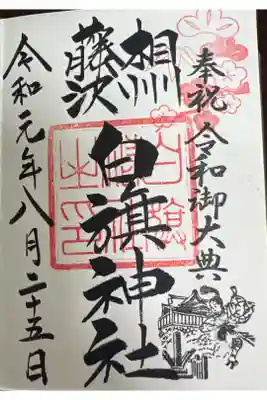 奉祝 令和御大典
相州
藤沢
白旗神社
令和元年八月二十五日